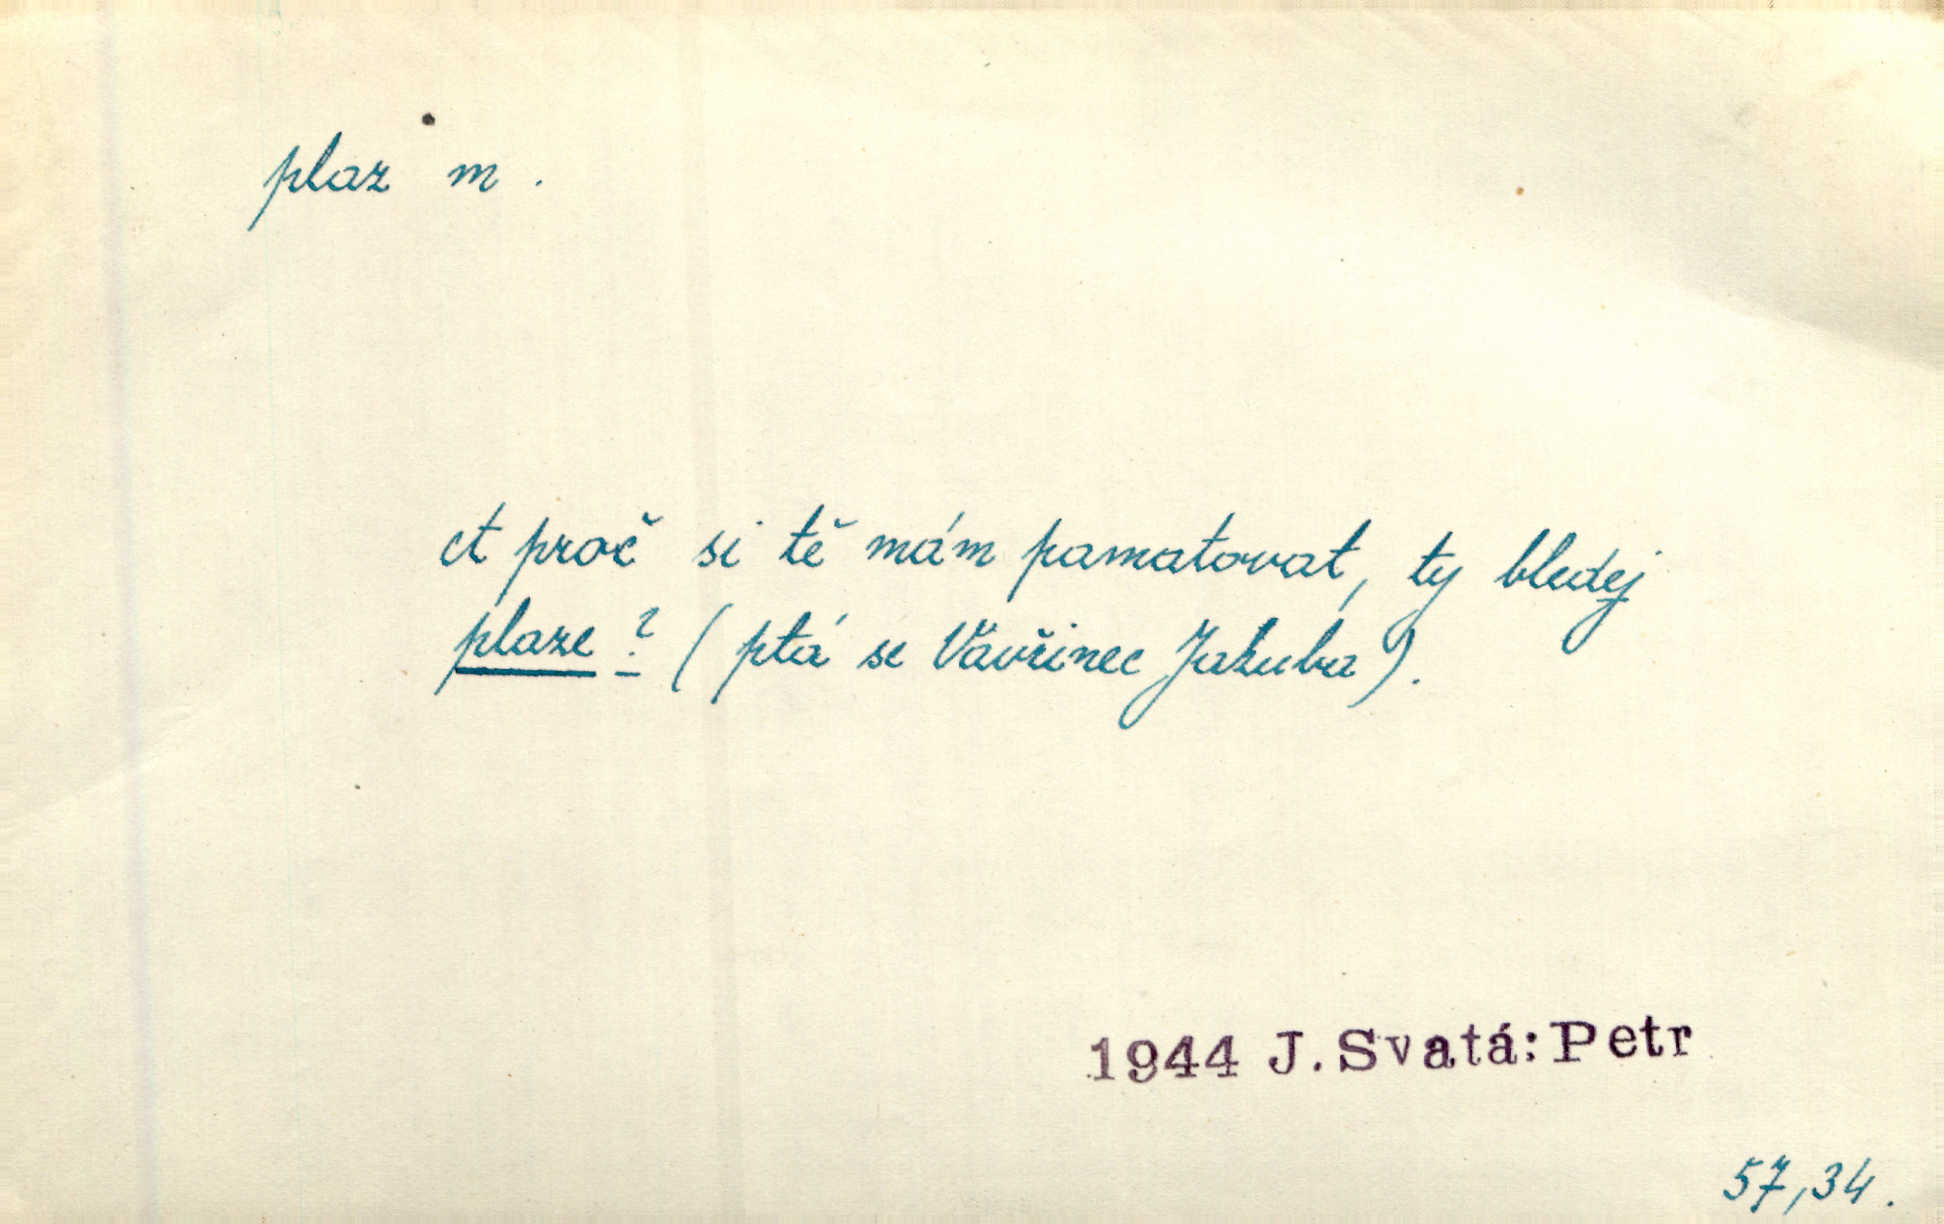 plaz m.
A proč si tě mám pamatovat, ty bledej
plaze? (ptá se Vavřinec Jakuba).
1944 J. Svatá: Petr
57,34.